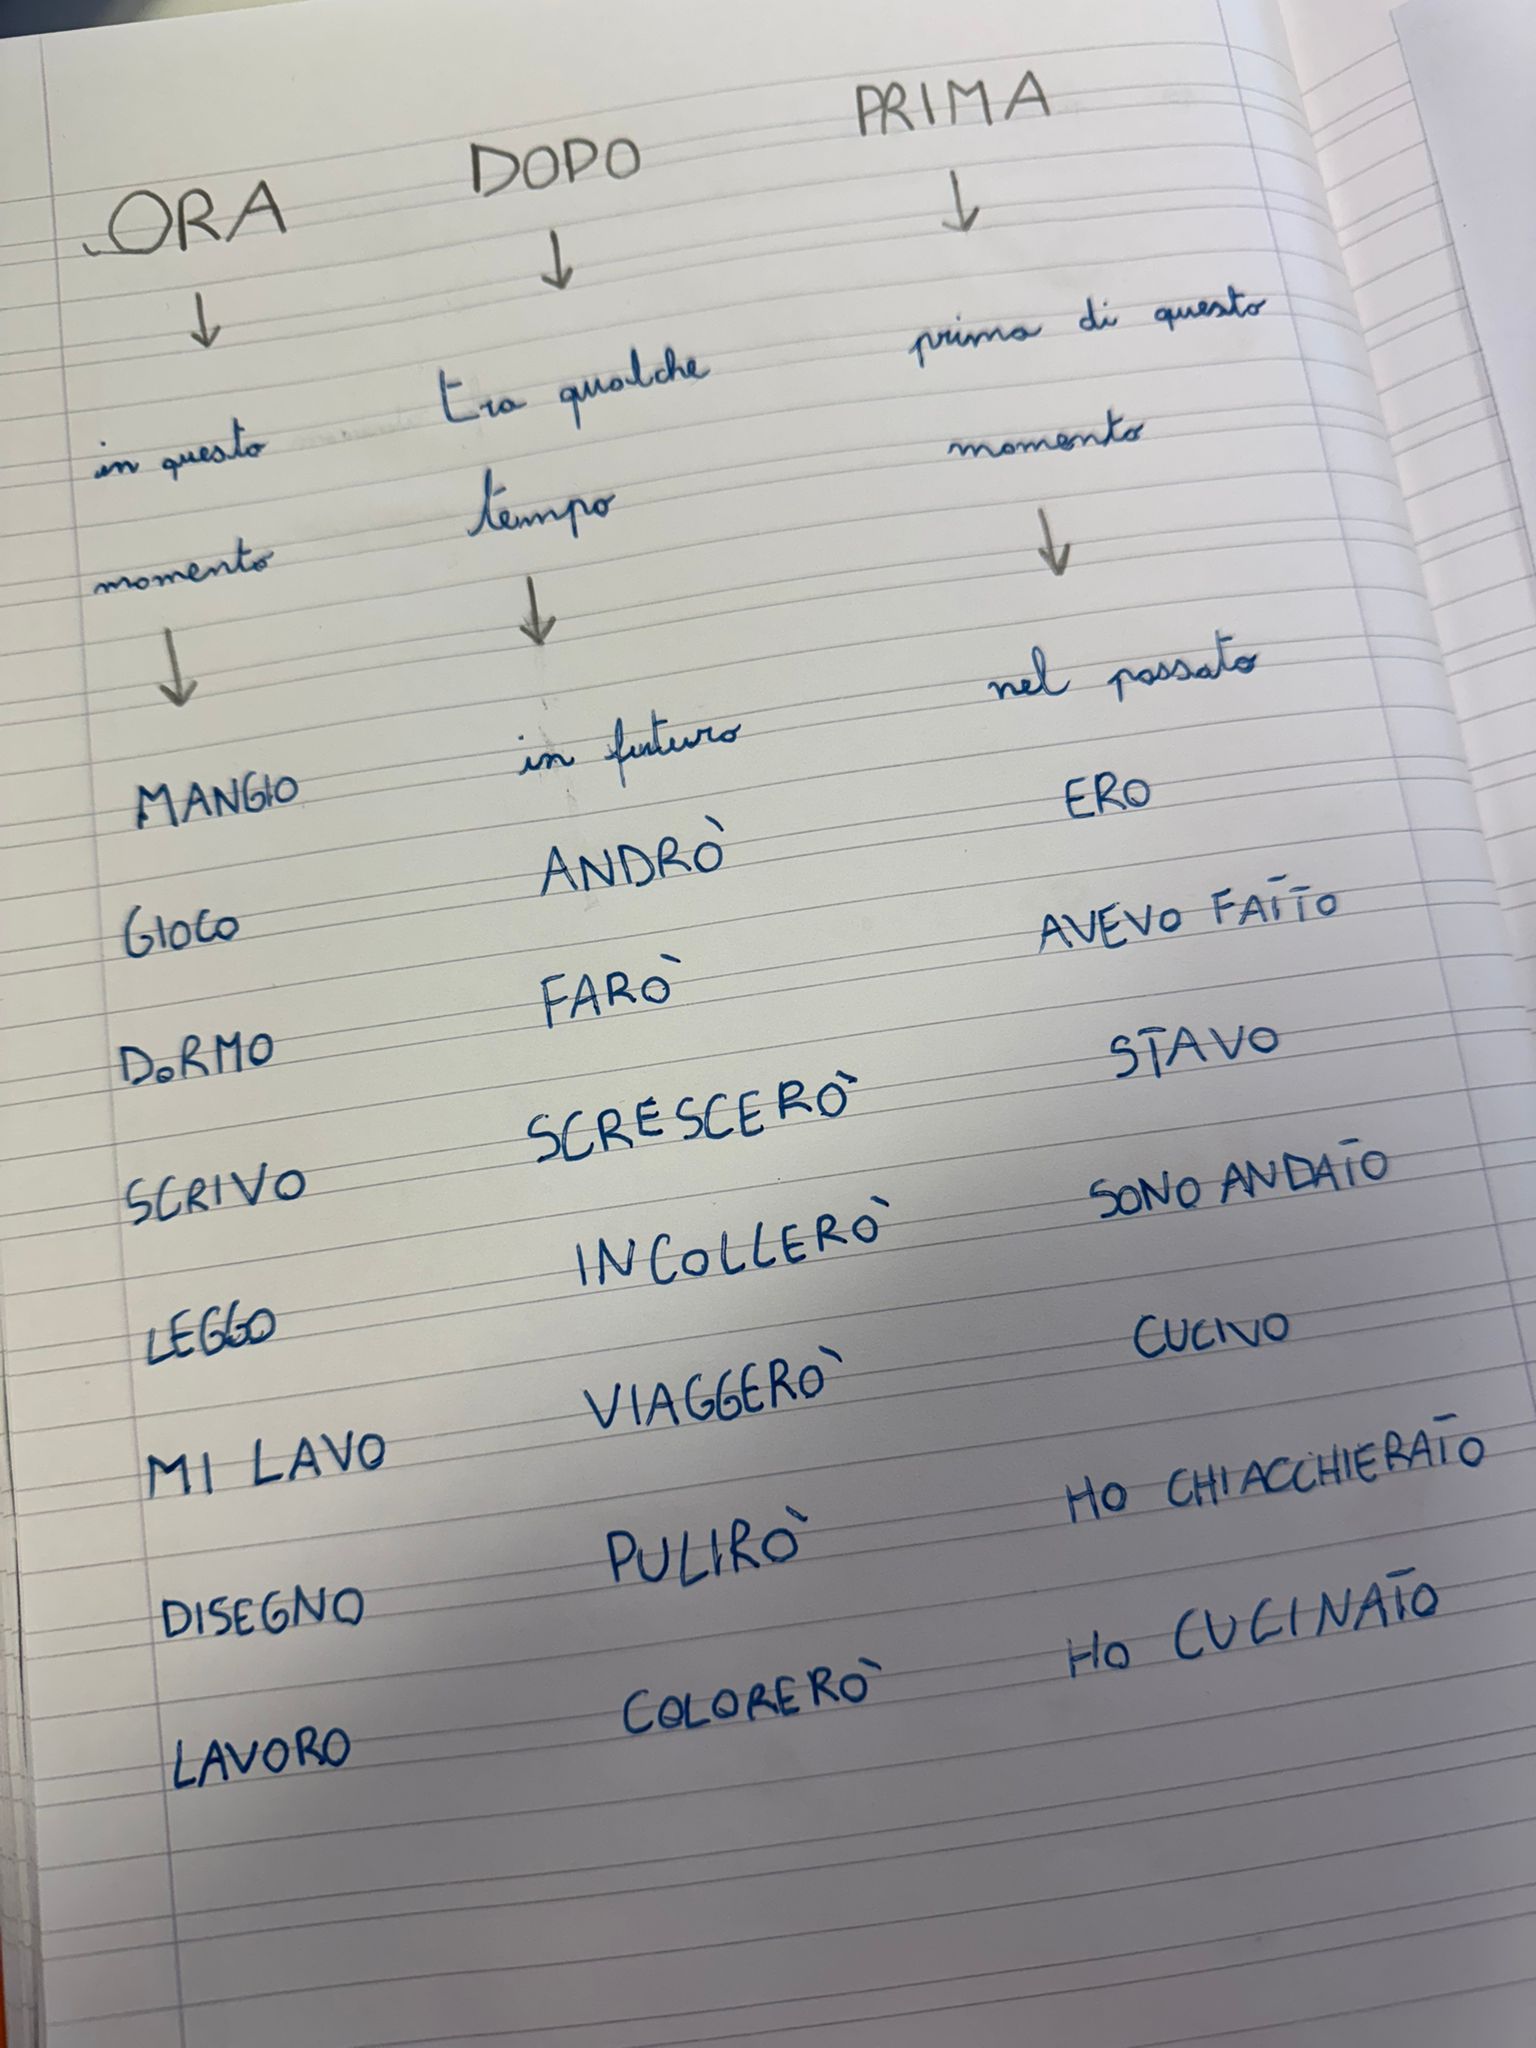 ORA DOPO PRIMA
↓ ↓ ↓
in questo tra qualche prima di questo
momento tempo momento
↓ ↓ ↓
MANGIO in futuro nel passato
GIOCO ANDRÒ ERO
DORMO FARÒ AVEVO FATTO
SCRIVO SCRESCERÒ STAVO
LEGGO INCOLLERÒ SONO ANDATO
MI LAVO VIAGGERÒ CUCIVO
DISEGNO PULIRÒ HO CHIACCHIERATO
LAVORO COLORERÒ HO CUCINATO